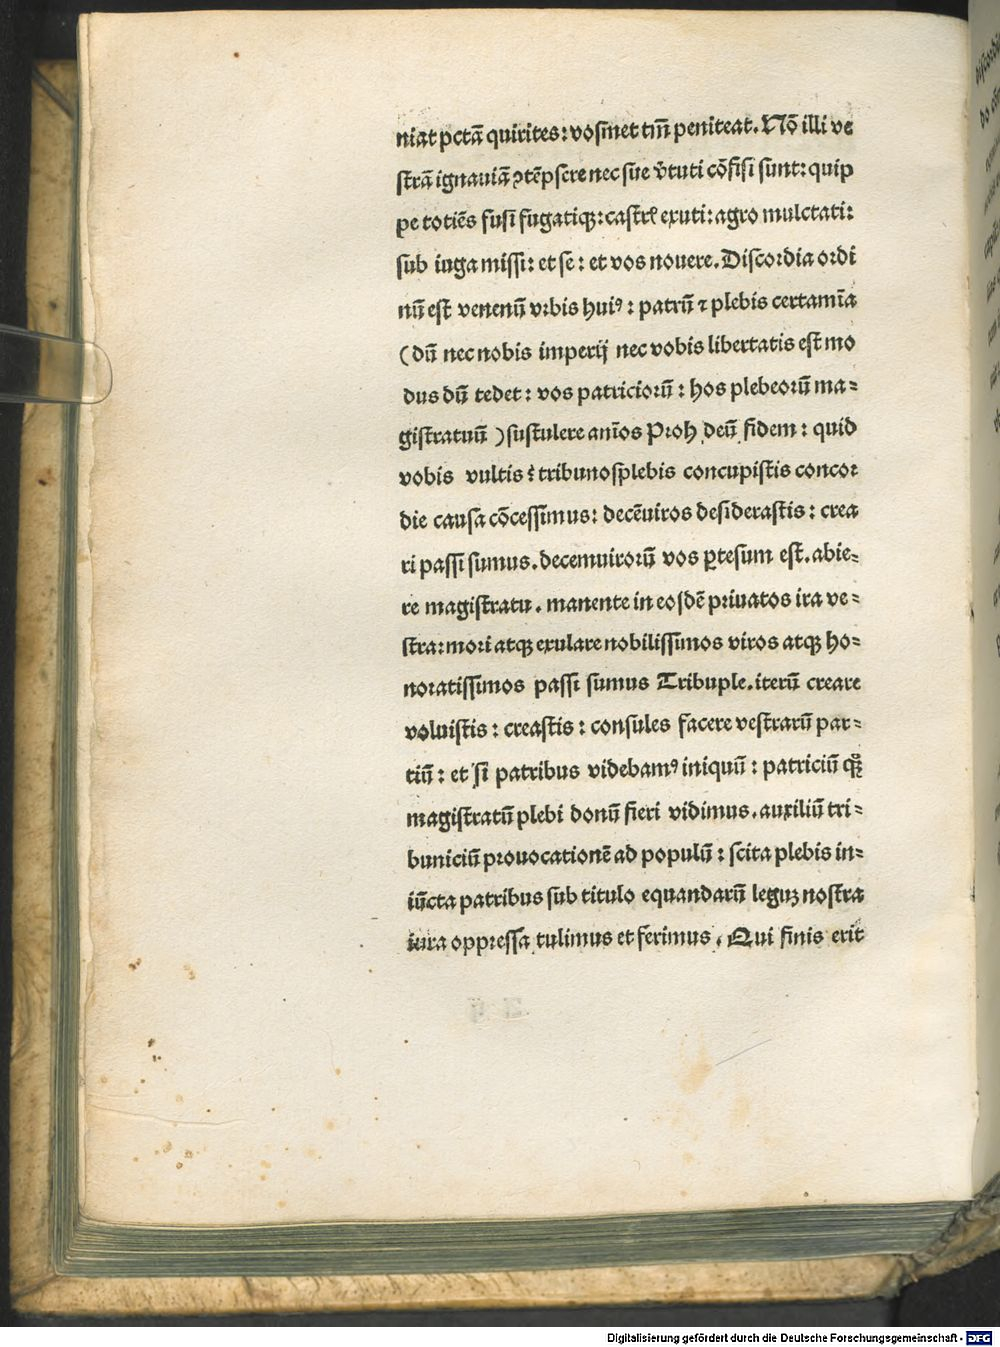 niat pctā quirites: vosmet tm̄ peniteat. Nō illi ve
strā ignauiā ↄtēpsere nec sue v̓tuti cōfisi sunt: quip
pe totiēs fusi fugatiqꝫ: castrꝭ exuti: agro mulctati:
sub iuga missi: et se: et vos nouere. Discordia ordi
nū est venenū vrbis huiꝰ: patrū ⁊ plebis certamīa
(dū nec nobis imperij nec vobis libertatis est mo
dus dū tedet: vos patriciorū: hos plebeorū ma-
gistratuū) sustulere anīos Proh deū fidem: quid
vobis vultis: tribunos plebis concupistis concor
die causa cōcessimus: decēuiros desiderastis: crea
ri passi sumus. decemuirorū vos ꝑtesum est. abie-
re magistratu. manente in eosdē priuatos ira ve-
stra: mori atqꝫ exulare nobilissimos viros atqꝫ ho-
noratissimos passi sumus Tribuple. iterū creare
voluistis: creastis: consules facere vestrarū par-
tiū: et si patribus videbamꝰ iniquū: patriciū qͦqꝫ
magistratū plebi donū fieri vidimus. auxiliū tri-
buniciū prouocationē ad populū: scita plebis in-
iūcta patribus sub titulo equandarū leguꝫ nostra
iura oppressa tulimus et ferimus. Qui finis erit
Digitalisierung gefördert durch die Deutsche Forschungsgemeinschaft - DFG